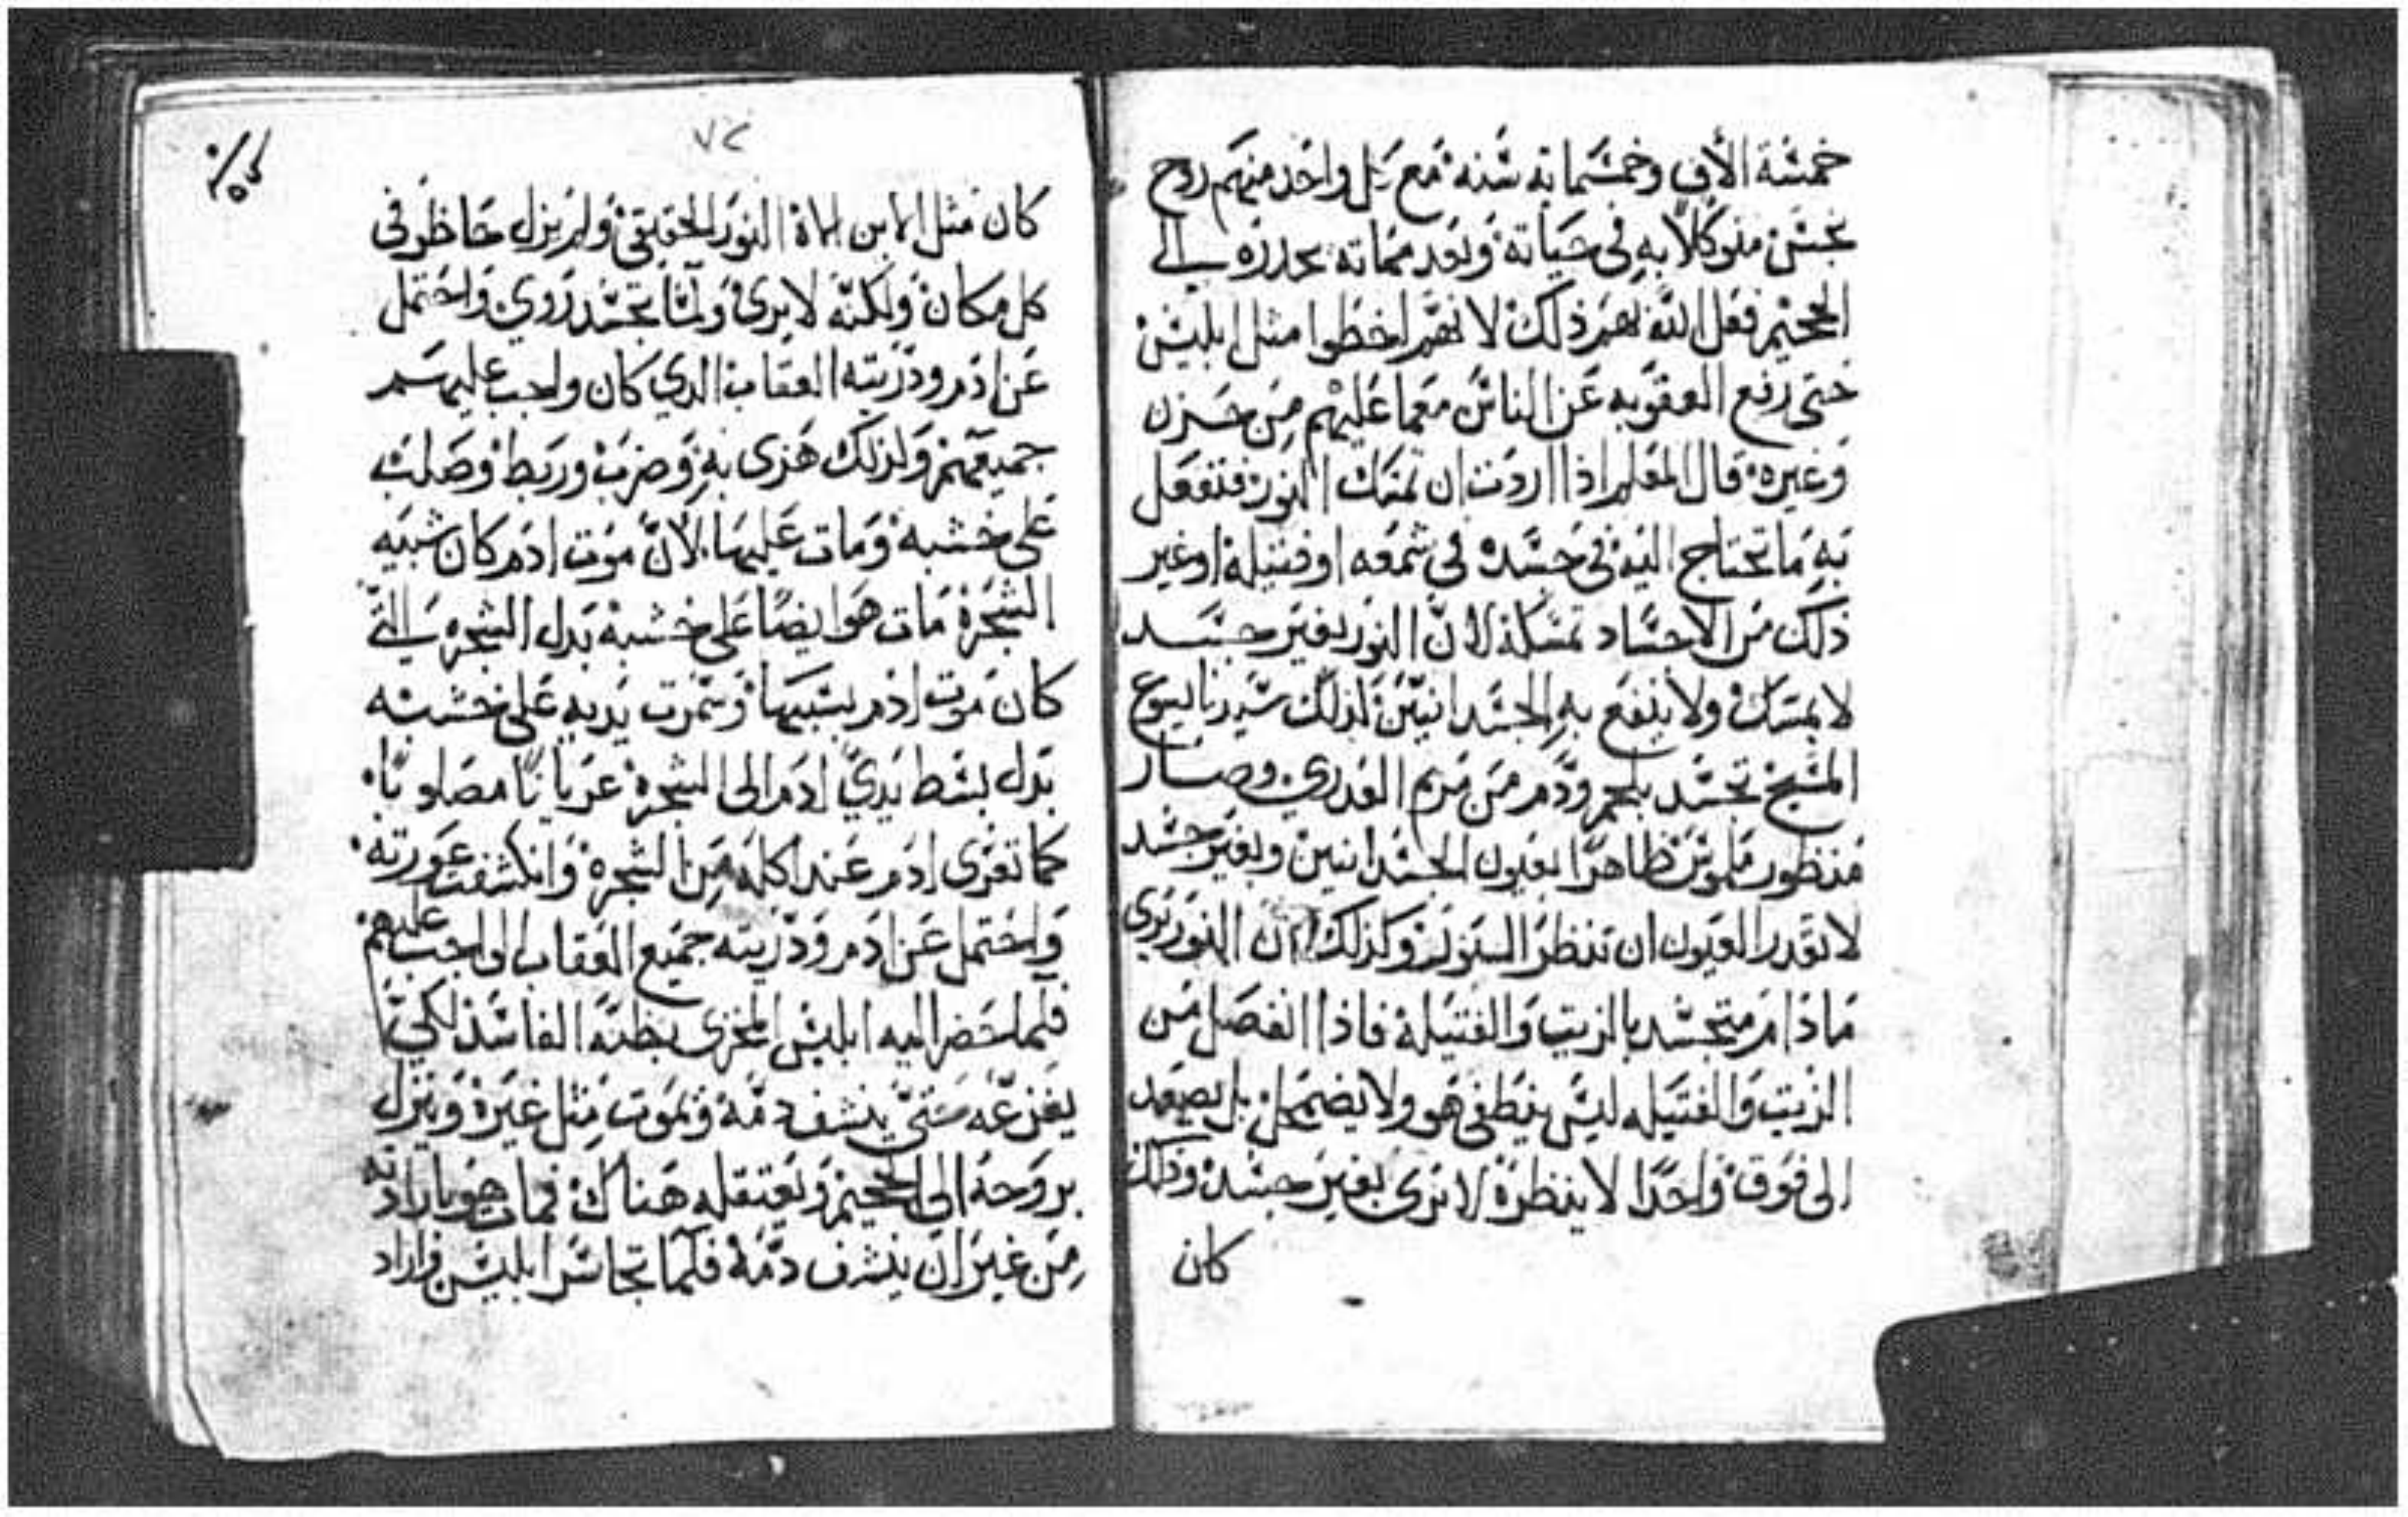 خمسة الاف وخمسماية سنة مع كل واحد منهم روح
نجس متوكلا به في حياته وبعد مماته يحدره الى
الجحيم فعل الله بهم ذلك لانهم اخطوا مثل ابليس
حتى رفع العقوبه عن الناس معما عليهم من حزن
وغيره قال المعلم اذا اردت ان تمسك النور فتفعل
به ما تحتاج اليه في جسد في شمعه او فتيلة او غير
ذلك من الاجساد تمسكه لان النور بغير جسد
لا يمسك ولا ينفع به الجسدانيين لذلك سيدنا يسوع
المسيح تجسد بلحم ودم من مريم العدري وصار
منظور ملموس ظاهرا لعيون الجسدانيين وبغير جسد
لا تقدر العيون ان تنظر وكذلك ان النور يرى
مادام متجسد بالزيت والفتيلة فاذا انفصل من
الزيت والفتيله ليس ينطفي هو ولا يضمحل بل يصعد
الى فوق واحدا لا ينظره لا يرى بغير جسد وذلك
كان
٧٢
كان مثل الابن الاه النور الحقيقي ولم يزل حاظر في
كل مكان ولكنه لا يرى ولما تجسد روي واحتمل
عن ادم وذريته العقاب الدي كان واجب عليهم
جميعهم ولذلك هزى به وضرب وربط وصلب
على خشبه ومات عليها لان موت ادم كان شبيه
الشجرة مات هو ايضا على خشبة بدل الشجره التي
كان موت ادم بسببها وسمرت يديه على خشبه
بدل بسط يدي ادم الى الشجرة عريانا مصلوبا
كما تعرى ادم عند اكله من الشجرة وانكشفت عورته
واحتمل عن ادم وذريته جميع العقاب الواجب عليهم
فلما حضر اليه ابليس المخزى بظنه الفاسد لكي
يفزعه حتى ينشف دمه ويموت مثل غيره وينزل
بروحه الى الجحيم ويعتقله هناك فمات هو بارادته
من غير ان ينشف دمه فلما تجاسر ابليس واراد